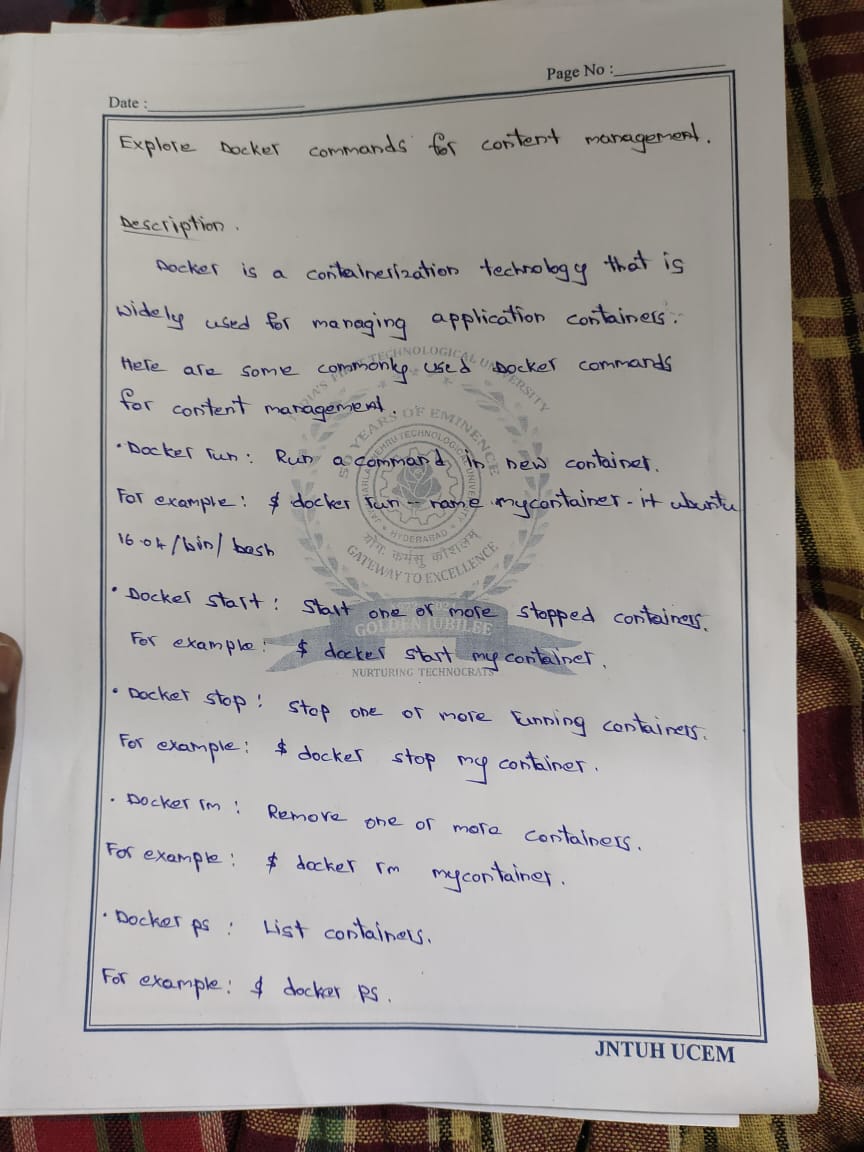 Page No :
Date :
Explore Docker commands for content management.
Description.
Docker is a containerization technology that is
widely used for managing application containers.
Here are some commonly used Docker commands
for content management.
• Docker run : Run a command in new container.
For example : $ docker run -- name mycontainer - it ubuntu
16.04 /bin/ bash
• Docker start : start one or more stopped containers.
For example : $ docker start my container.
• Docker stop : stop one or more running containers.
For example : $ docker stop my container.
• Docker rm : Remove one or more containers.
For example : $ docker rm mycontainer.
• Docker ps : List containers.
For example : $ docker ps.
TECHNOLOGICAL UNIVERSITY
YEARS OF EMINENCE
JAWAHARLAL NEHRU TECHNOLOGICAL UNIVERSITY
HYDERABAD
योगः कर्मसु कौशलम्
GATEWAY TO EXCELLENCE
GOLDEN JUBILEE
NURTURING TECHNOCRATS
JNTUH UCEM